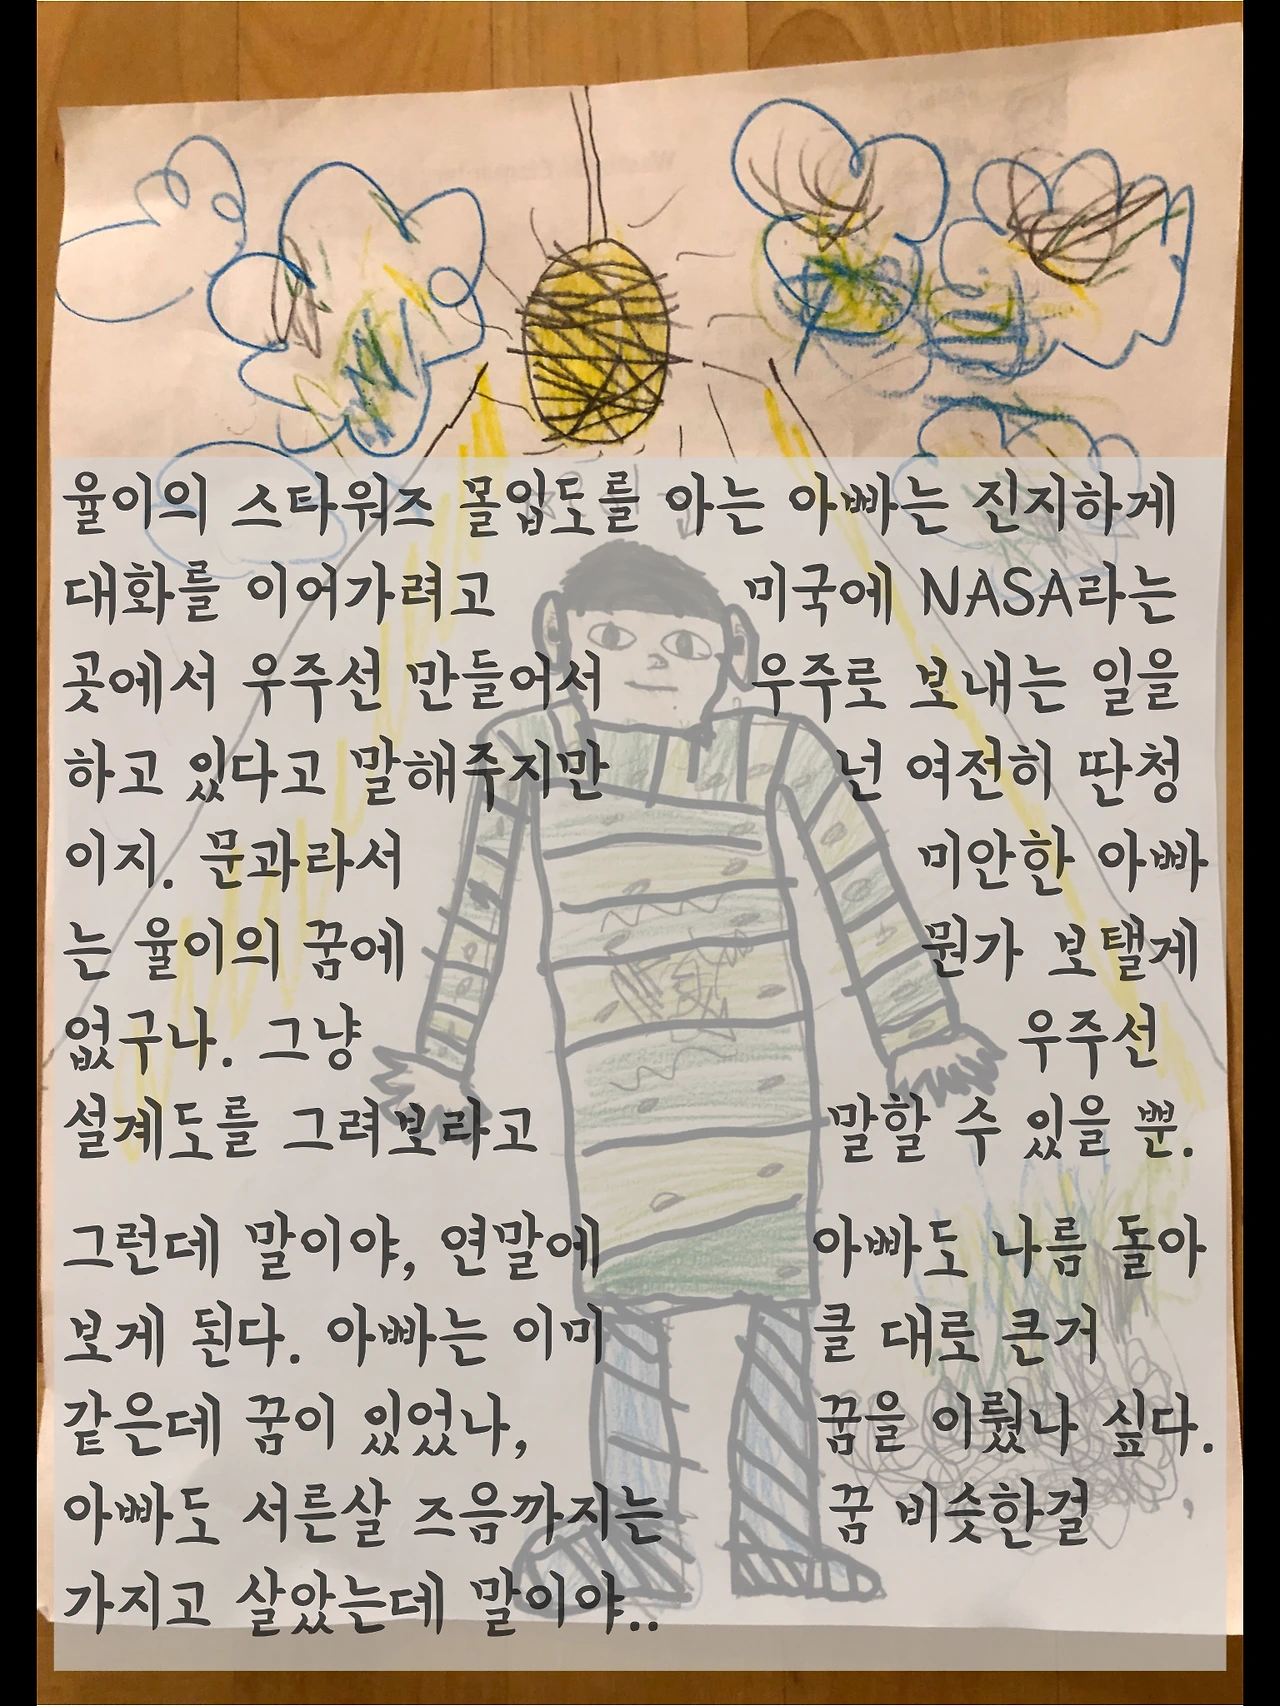 율이의 스타워즈 몰입도를 아는 아빠는 진지하게
대화를 이어가려고 미국에 NASA라는
곳에서 우주선 만들어서 우주로 보내는 일을
하고 있다고 말해주지만 넌 여전히 딴청
이지. 문과라서 미안한 아빠
는 율이의 꿈에 뭔가 보탤게
없구나. 그냥 우주선
설계도를 그려보라고 말할 수 있을 뿐.
그런데 말이야, 연말에 아빠도 나름 돌아
보게 된다. 아빠는 이미 클 대로 큰거
같은데 꿈이 있었나, 꿈을 이뤘나 싶다.
아빠도 서른살 즈음까지는 꿈 비슷한걸
가지고 살았는데 말이야..